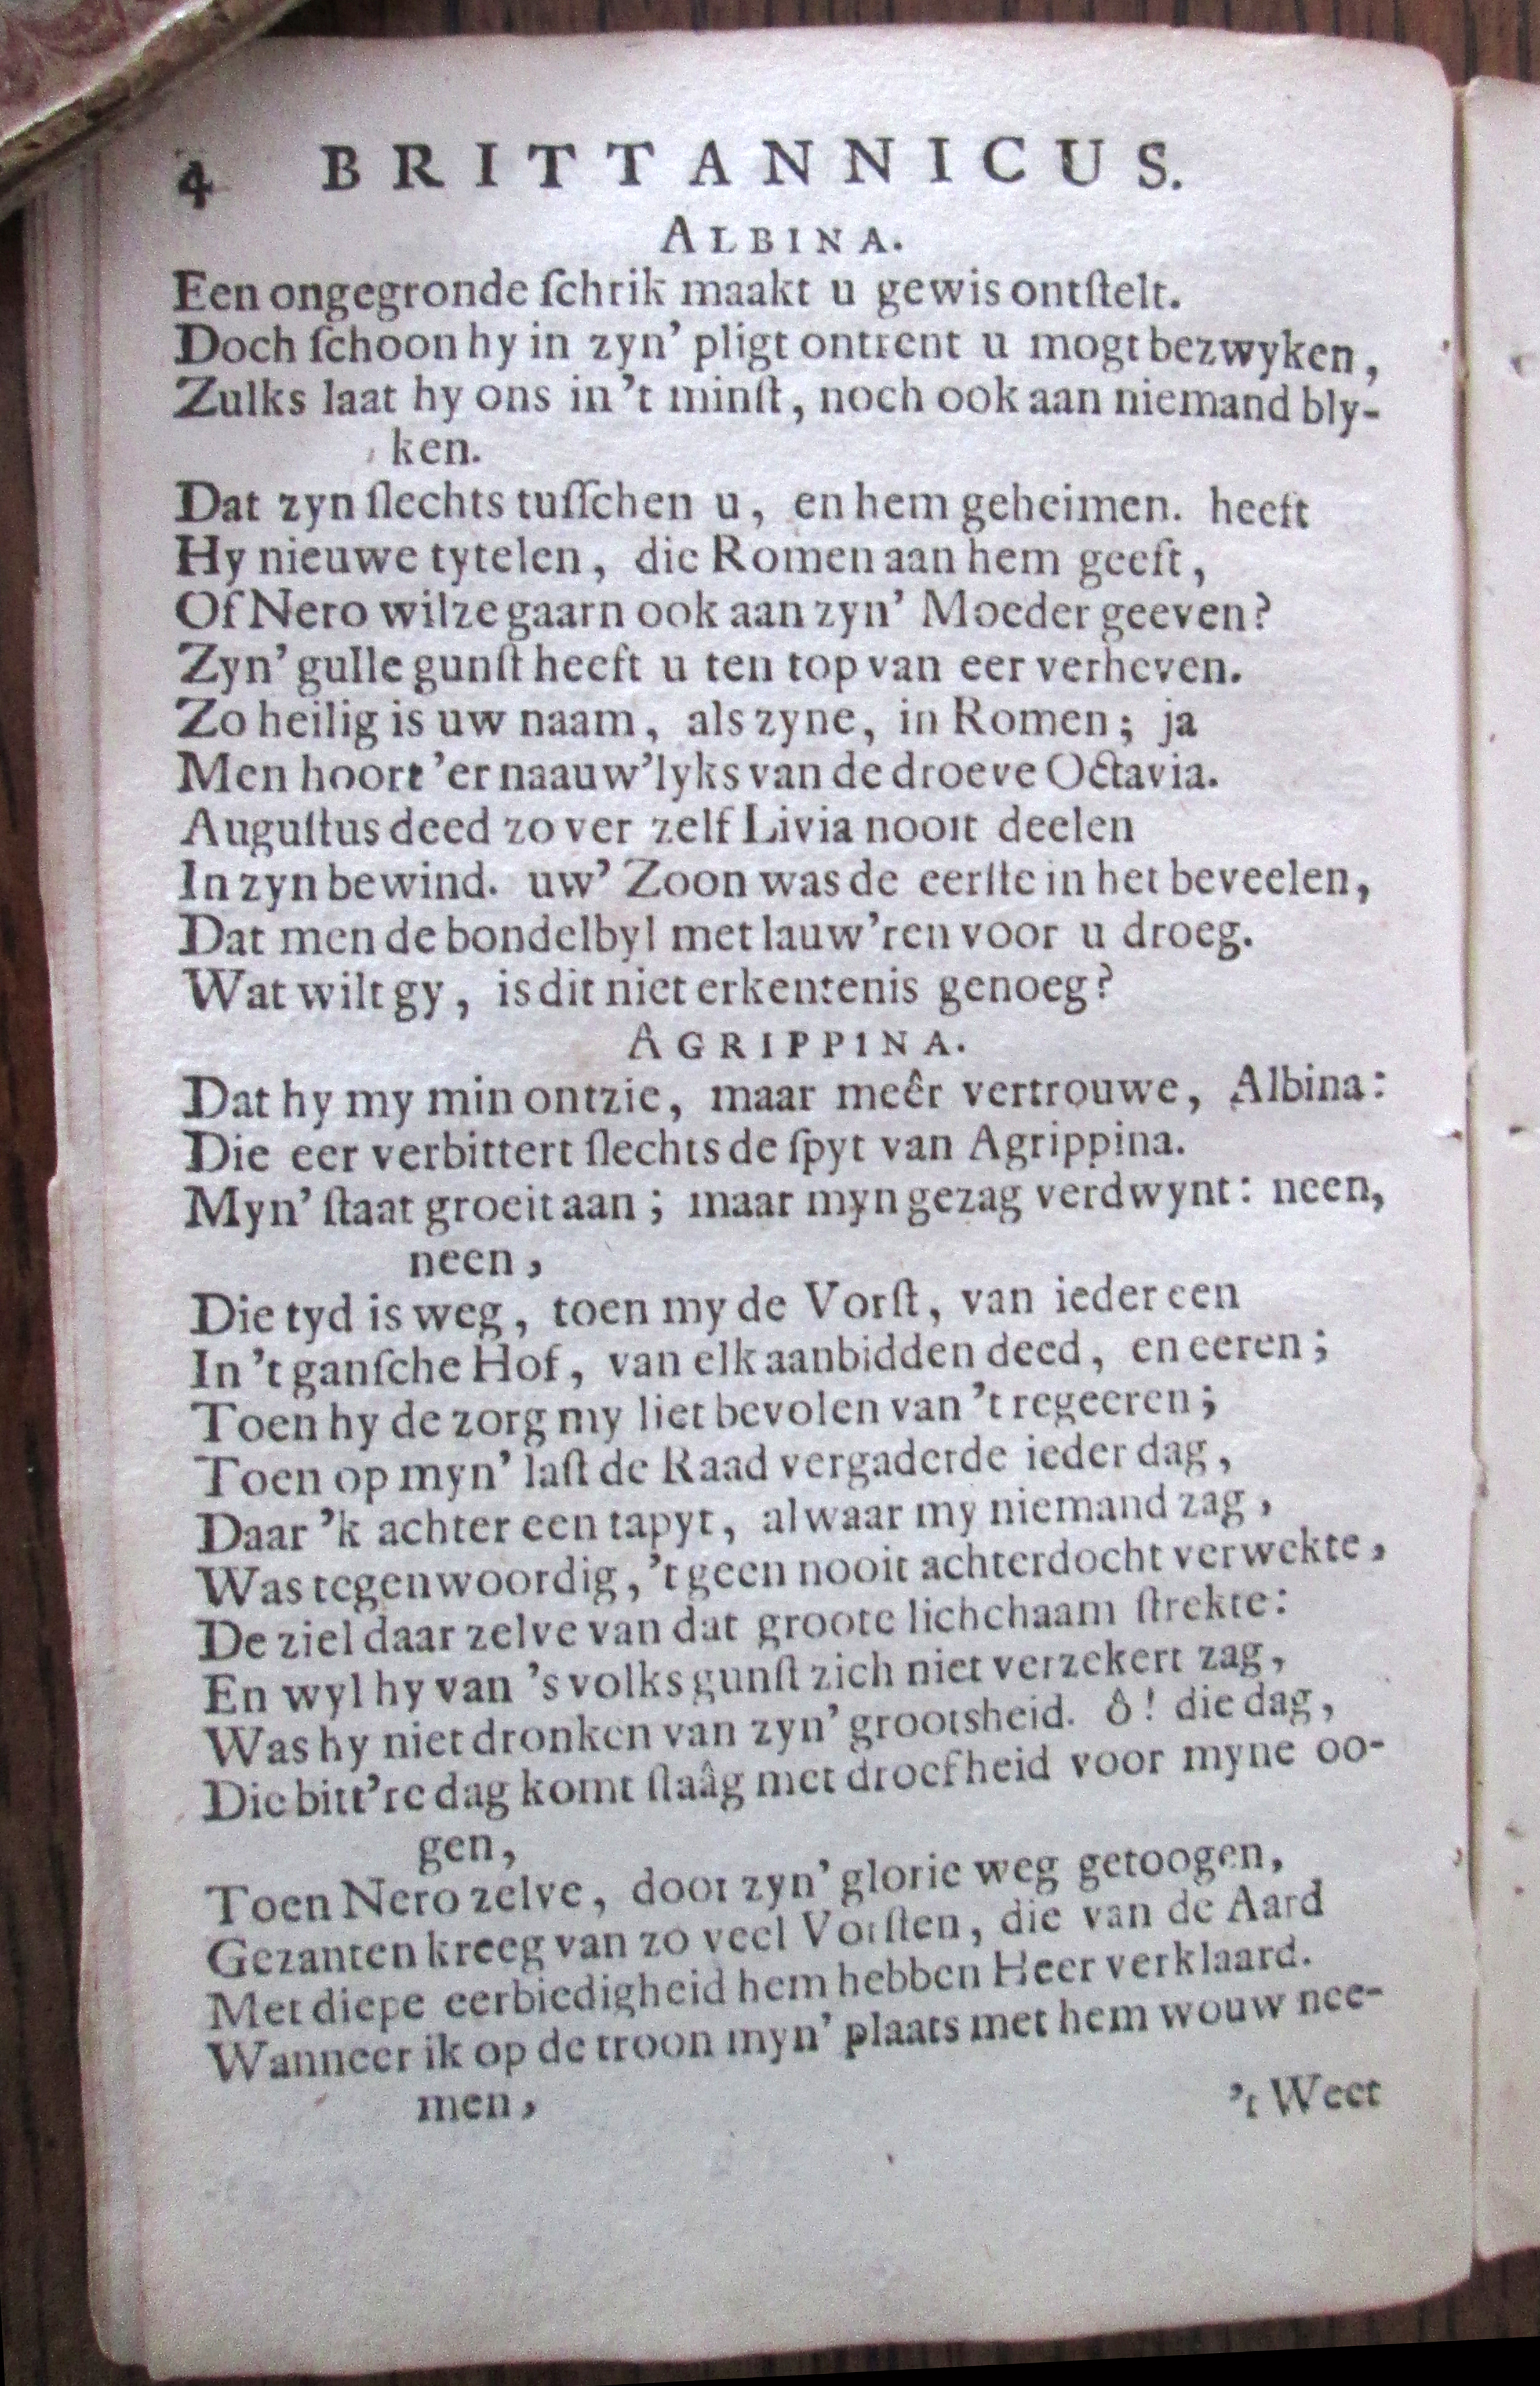 4 BRITTANNICUS.
ALBINA.
Een ongegronde ſchrik maakt u gewis ontſtelt.
Doch ſchoon hy in zyn' pligt ontrent u mogt bezwyken,
Zulks laat hy ons in 't minſt, noch ook aan niemand bly-
ken.
Dat zyn ſlechts tuſſchen u, en hem geheimen. heeft
Hy nieuwe tytelen, die Romen aan hem geeft,
Of Nero wilze gaarn ook aan zyn' Moeder geeven?
Zyn' gulle gunſt heeft u ten top van eer verheven.
Zo heilig is uw naam, als zyne, in Romen; ja
Men hoort 'er naauw'lyks van de droeve Octavia.
Auguſtus deed zo ver zelf Livia nooit deelen
In zyn bewind. uw' Zoon was de eerſte in het beveelen,
Dat men de bondelbyl met lauw'ren voor u droeg.
Wat wilt gy, is dit niet erkentenis genoeg?
AGRIPPINA.
Dat hy my min ontzie, maar meêr vertrouwe, Albina:
Die eer verbittert ſlechts de ſpyt van Agrippina.
Myn' ſtaat groeit aan; maar myn gezag verdwynt: neen,
neen,
Die tyd is weg, toen my de Vorſt, van ieder een
In 't ganſche Hof, van elk aanbidden deed, en eeren;
Toen hy de zorg my liet bevolen van 't regeeren;
Toen op myn' laſt de Raad vergaderde ieder dag,
Daar 'k achter een tapyt, alwaar my niemand zag,
Was tegenwoordig, 't geen nooit achterdocht verwekte,
De ziel daar zelve van dat groote lichchaam ſtrekte:
En wyl hy van 's volks gunſt zich niet verzekert zag,
Was hy niet dronken van zyn' grootsheid. ô! die dag,
Die bitt're dag komt ſlaâg met droefheid voor myne oo-
gen,
Toen Nero zelve, door zyn' glorie weg getoogen,
Gezanten kreeg van zo veel Vorſten, die van de Aard
Met diepe eerbiedigheid hem hebben Heer verklaard.
Wanneer ik op de troon myn' plaats met hem wouw nee-
men,
't Weet